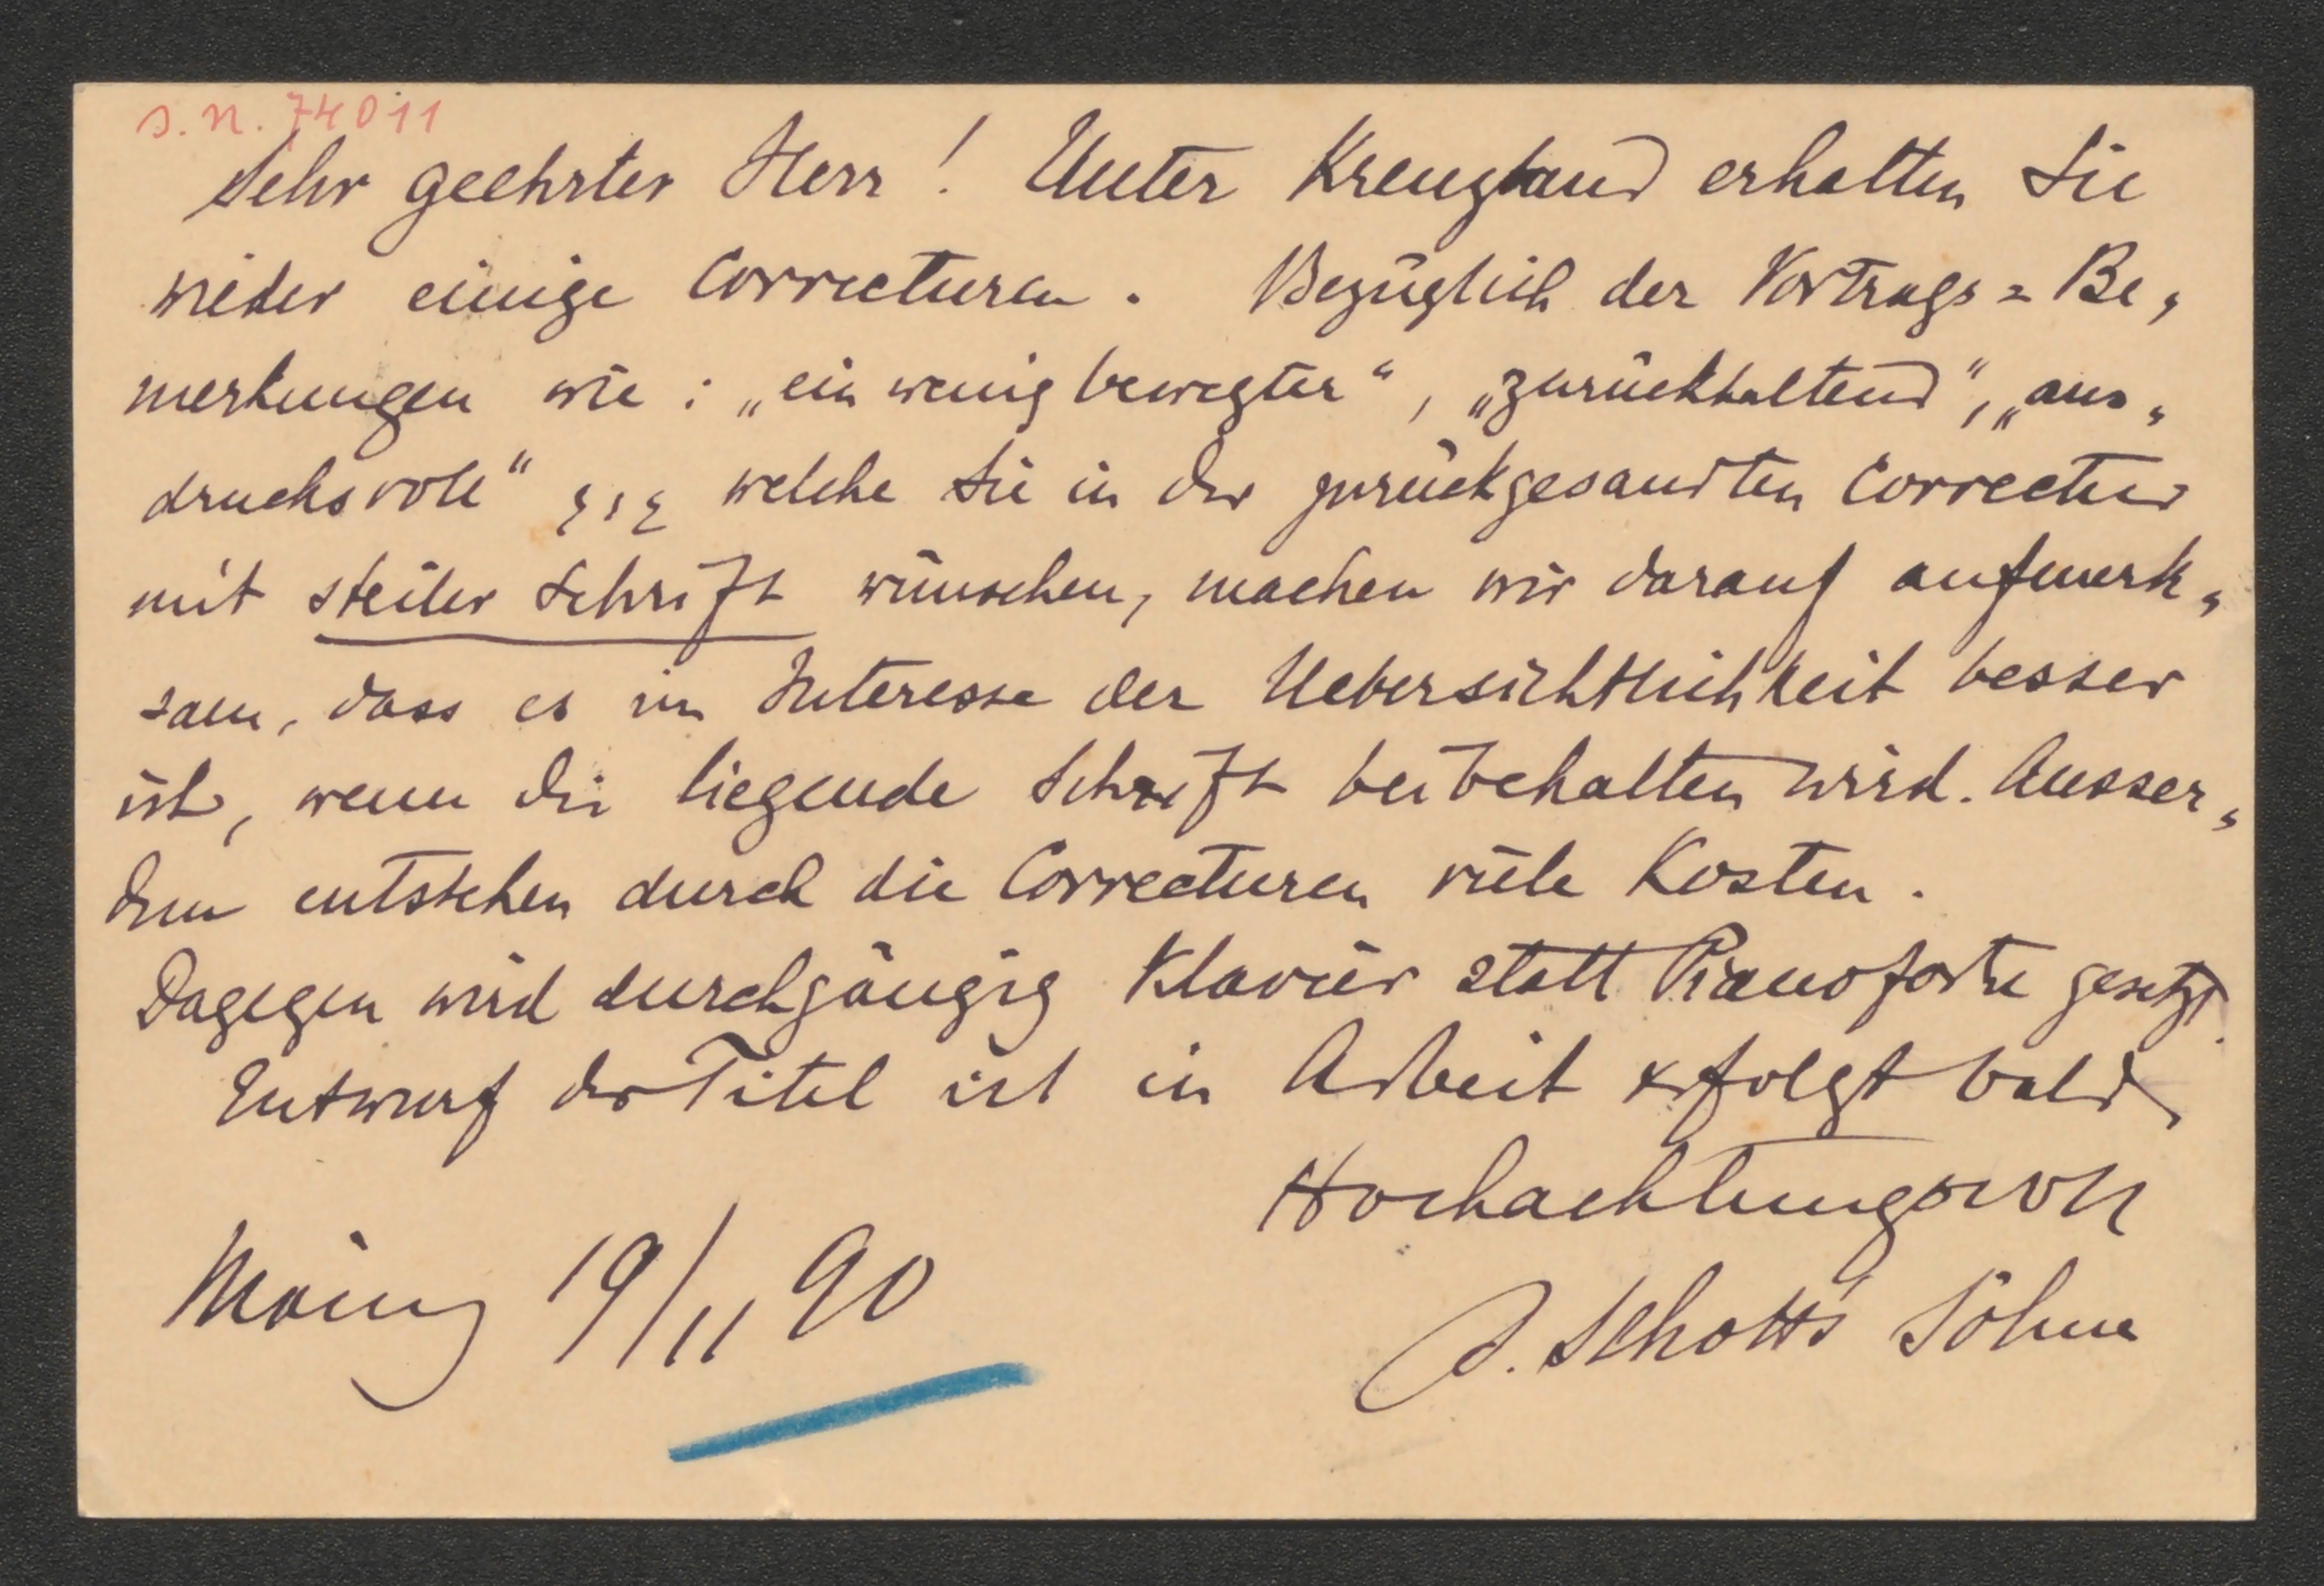 s. n. 74011
Sehr geehrter Herr! Unter Kreuzband erhalten Sie
wieder einige Correcturen. Bezüglich der Vortrags=Be„
merkungen wie: „ein wenig bewegter“, „zurückhaltend“, „aus„
drucksvoll“ welche Sie in der zurückgesandten Correctur
mit steiler Schrift wünschen, machen wir darauf aufmerk„
sam, dass es im Interesse der Uebersichtlichkeit besser
ist, wenn die liegende Schrift beibehalten wird. Ausser„
dem entstehen durch die Correcturen viele Kosten.
Dagegen wird durchgängig Klavier statt Pianoforte gesetzt.
Entwurf der Titel ist in Arbeit & erfolgt bald
Hochachtungsvoll
Mainz 19/11 90
B. Schott's Söhne